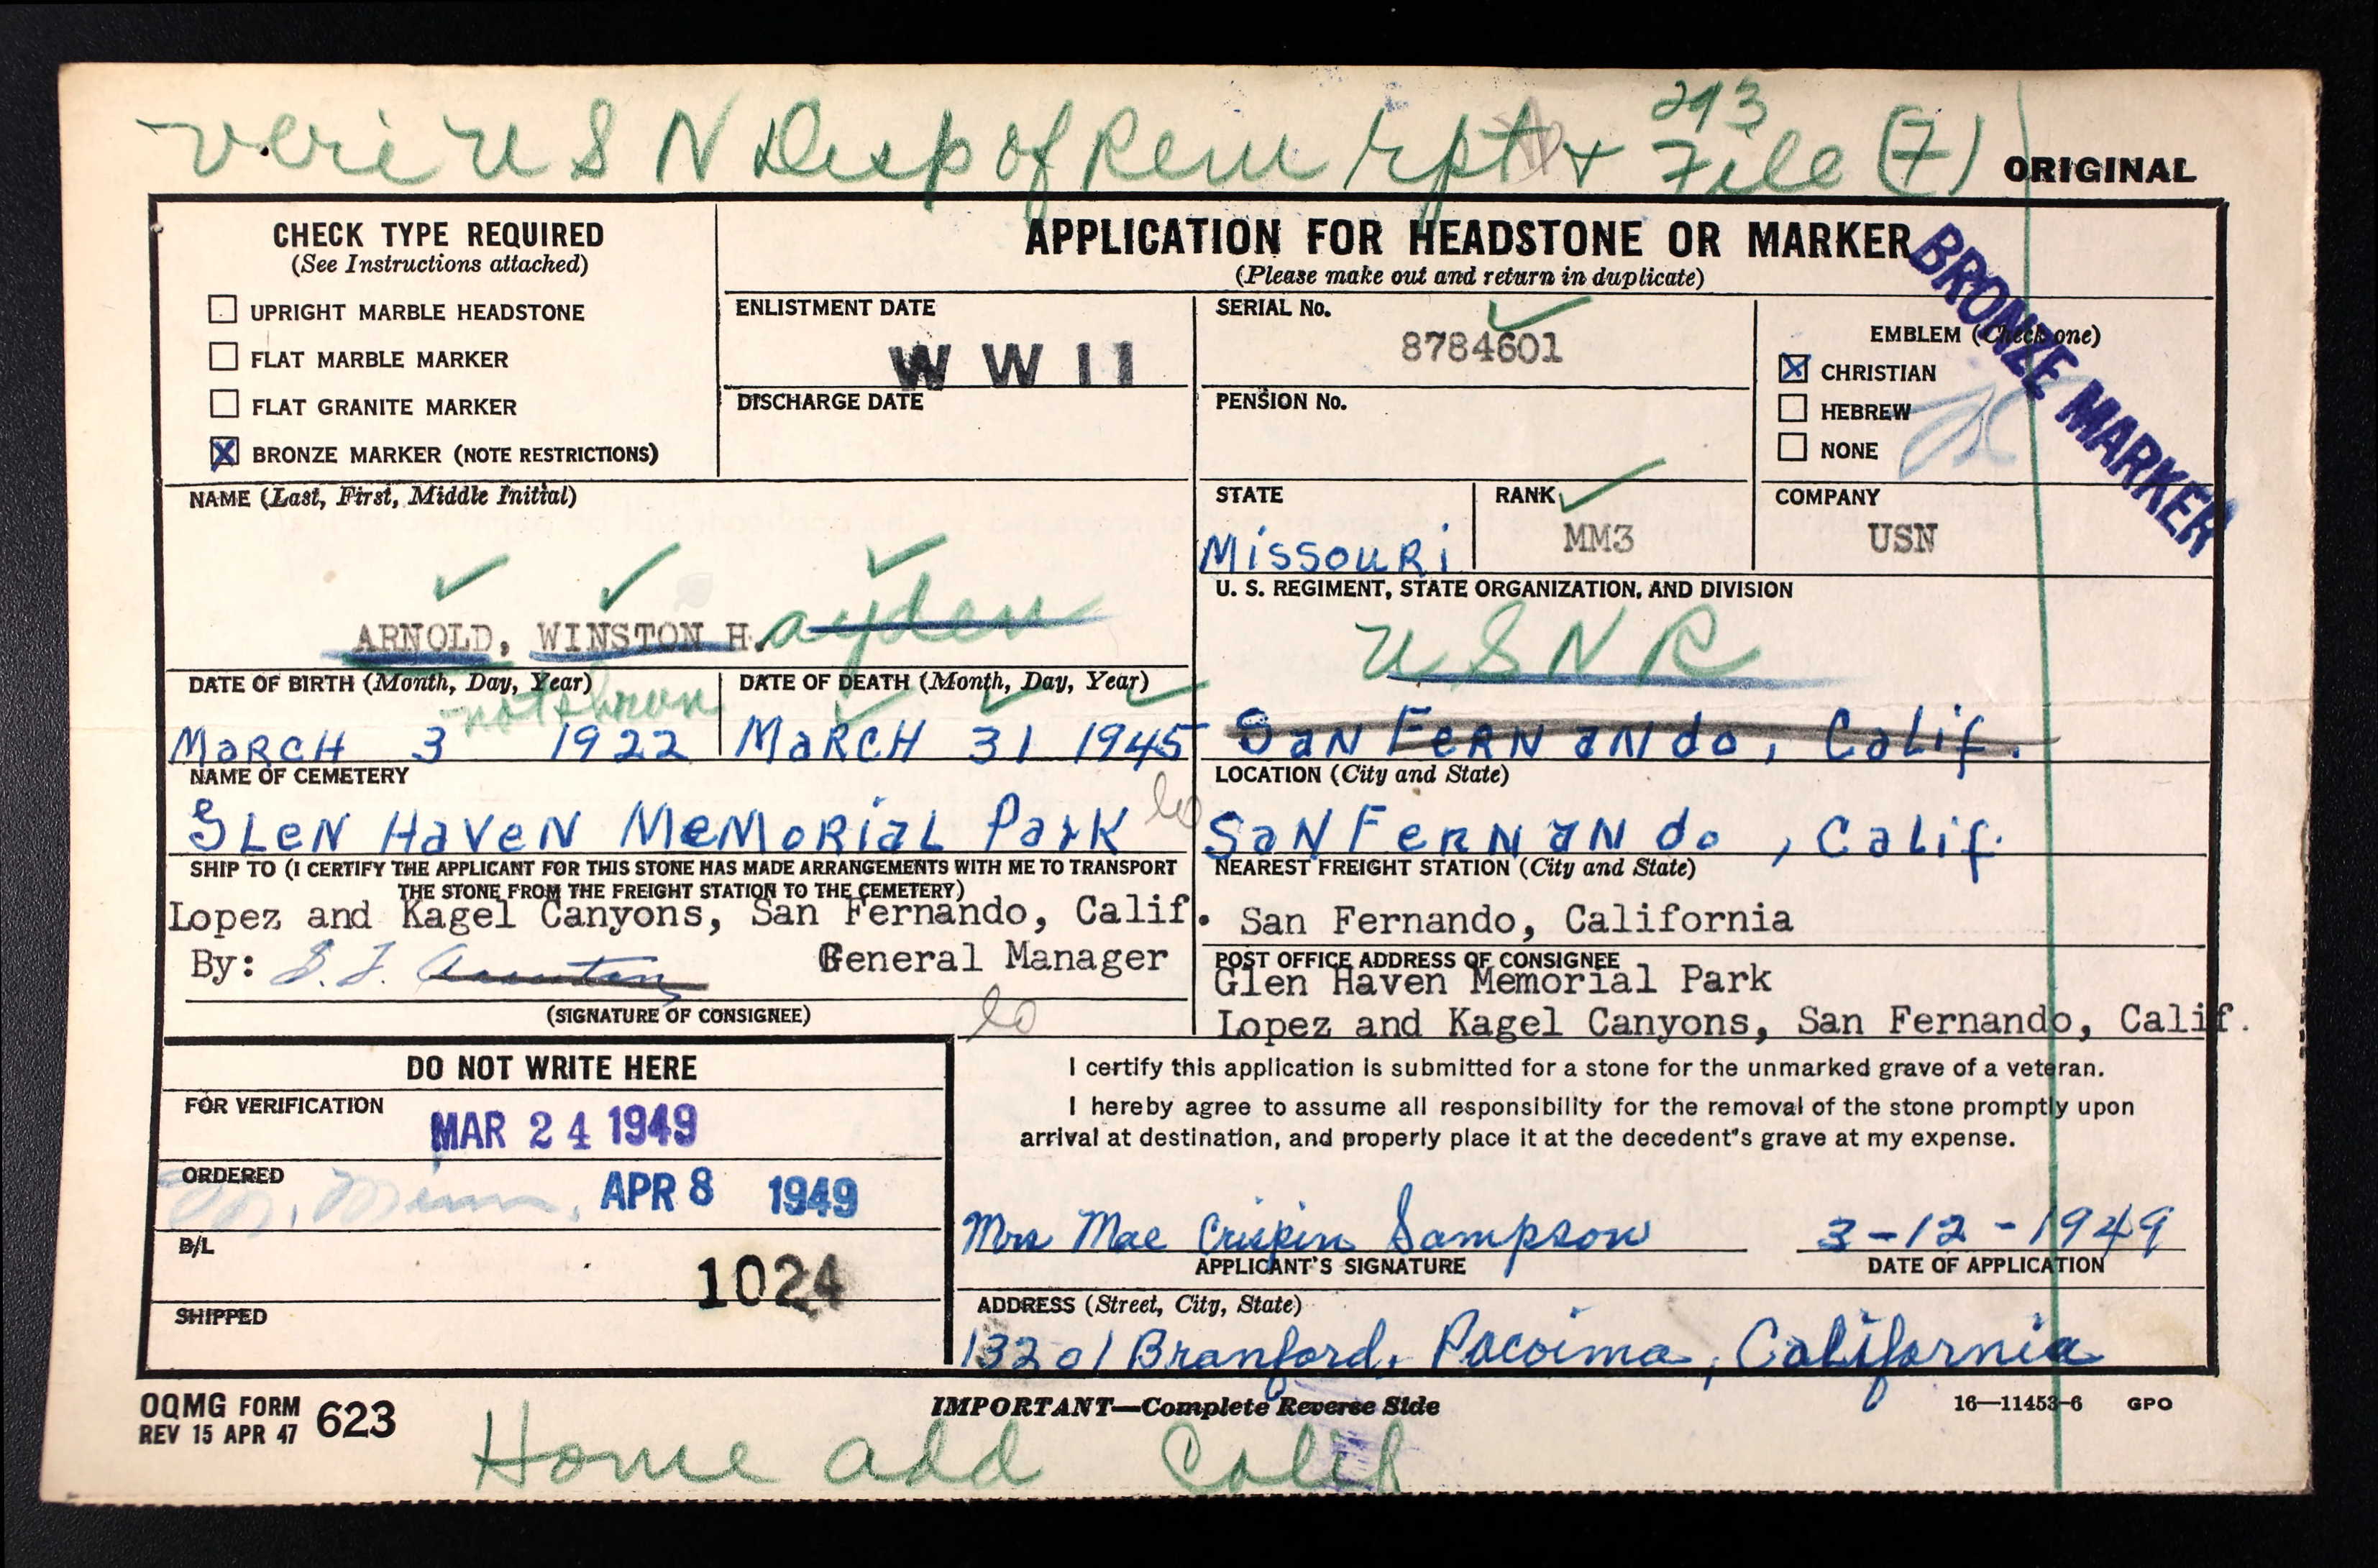 293
Veri U S N Disp of Rem rpt + File (7) ORIGINAL
CHECK TYPE REQUIRED
(See Instructions attached)
UPRIGHT MARBLE HEADSTONE
FLAT MARBLE MARKER
FLAT GRANITE MARKER
X BRONZE MARKER (NOTE RESTRICTIONS)
APPLICATION FOR HEADSTONE OR MARKER
(Please make out and return in duplicate)
BRONZE MARKER
ENLISTMENT DATE
W W II
DISCHARGE DATE
SERIAL No.
8784601
PENSION No.
EMBLEM (Check one)
X CHRISTIAN
HEBREW
NONE
NAME (Last, First, Middle Initial)
ARNOLD, WINSTON H.ayden
STATE
Missouri
RANK
MM3
COMPANY
USN
U. S. REGIMENT, STATE ORGANIZATION, AND DIVISION
U S N R
San Fernando, Calif.
DATE OF BIRTH (Month, Day, Year)
not shown
March 3 1922
DATE OF DEATH (Month, Day, Year)
March 31 1945
NAME OF CEMETERY
Glen Haven Memorial Park
LOCATION (City and State)
San Fernando, Calif.
SHIP TO (I CERTIFY THE APPLICANT FOR THIS STONE HAS MADE ARRANGEMENTS WITH ME TO TRANSPORT
THE STONE FROM THE FREIGHT STATION TO THE CEMETERY)
Lopez and Kagel Canyons, San Fernando, Calif.
By: General Manager
(SIGNATURE OF CONSIGNEE)
NEAREST FREIGHT STATION (City and State)
San Fernando, California
POST OFFICE ADDRESS OF CONSIGNEE
Glen Haven Memorial Park
Lopez and Kagel Canyons, San Fernando, Calif.
DO NOT WRITE HERE
FOR VERIFICATION
MAR 24 1949
ORDERED
APR 8 1949
B/L
1024
SHIPPED
I certify this application is submitted for a stone for the unmarked grave of a veteran.
I hereby agree to assume all responsibility for the removal of the stone promptly upon
arrival at destination, and properly place it at the decedent's grave at my expense.
Mrs Mae Crispin Sampson 3-12-1949
APPLICANT'S SIGNATURE DATE OF APPLICATION
ADDRESS (Street, City, State)
13201 Branford, Pacoima, California
OQMG FORM 623
REV 15 APR 47
IMPORTANT—Complete Reverse Side
16—11453-6 GPO
Home add Calif